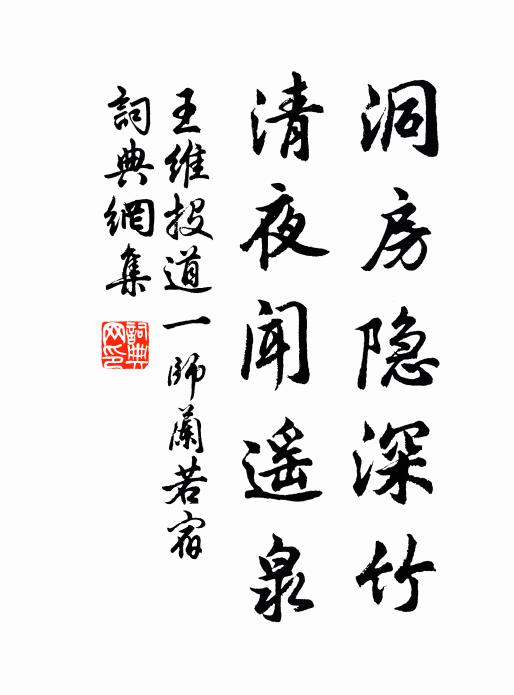 洞房隐深竹
清夜闻遥泉
王维投道一師蘭若宿
詞典網集
詞典网印